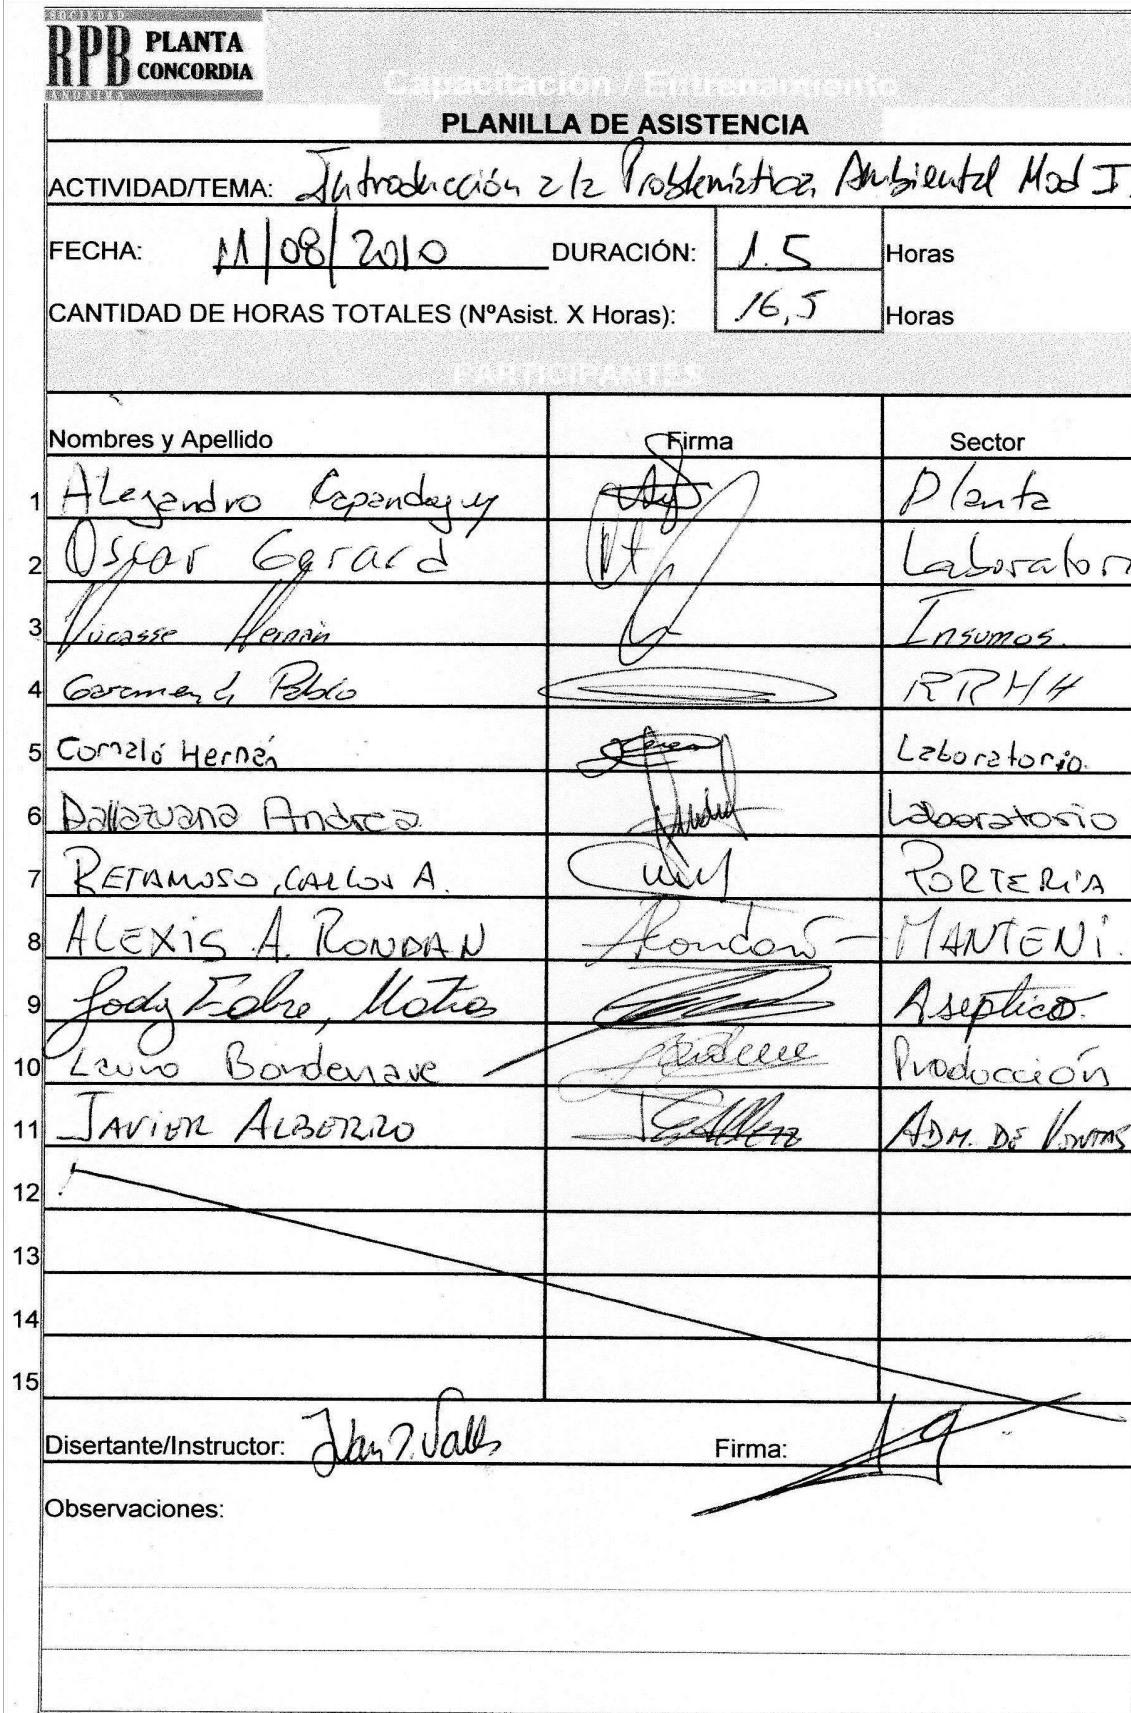 SOCIEDAD
RPB PLANTA CONCORDIA
ANONIMA
Capacitación / Entrenamiento
PLANILLA DE ASISTENCIA
ACTIVIDAD/TEMA: Introducción a la Problemática Ambiental Mod I.
FECHA: 11/08/2010 DURACIÓN: 1.5 Horas
CANTIDAD DE HORAS TOTALES (NºAsist. X Horas): 16,5 Horas
PARTICIPANTES
Nombres y Apellido Firma Sector
1 Alejandro Planta
2 Oscar Gerard Laborator
3 Ducasse Hernán Insumos.
4 Pablo RRHH
5 Hernán Laboratorio.
6 Dallazuana Andrea Laboratorio
7 RETAMOSO, CARLOS A. PORTERIA
8 ALEXIS A. RONDAN MANTENI.
9 Matias Aseptico.
10 Lauro Bordenave Producción
11 JAVIER ALBERRO ADM. DE VENTAS
12
13
14
15
Disertante/Instructor: Firma:
Observaciones: